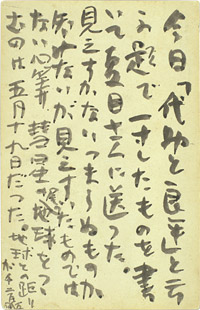 今日「代助と良平」と云
ふ題で一寸したものを書
いて夏目さんに送つた。
見えすかないつまらぬものか
知れないが見えすいたものでは
ない心算 彗星が地球をつ
むのは五月十九日だつた。地球との距り
が千二百